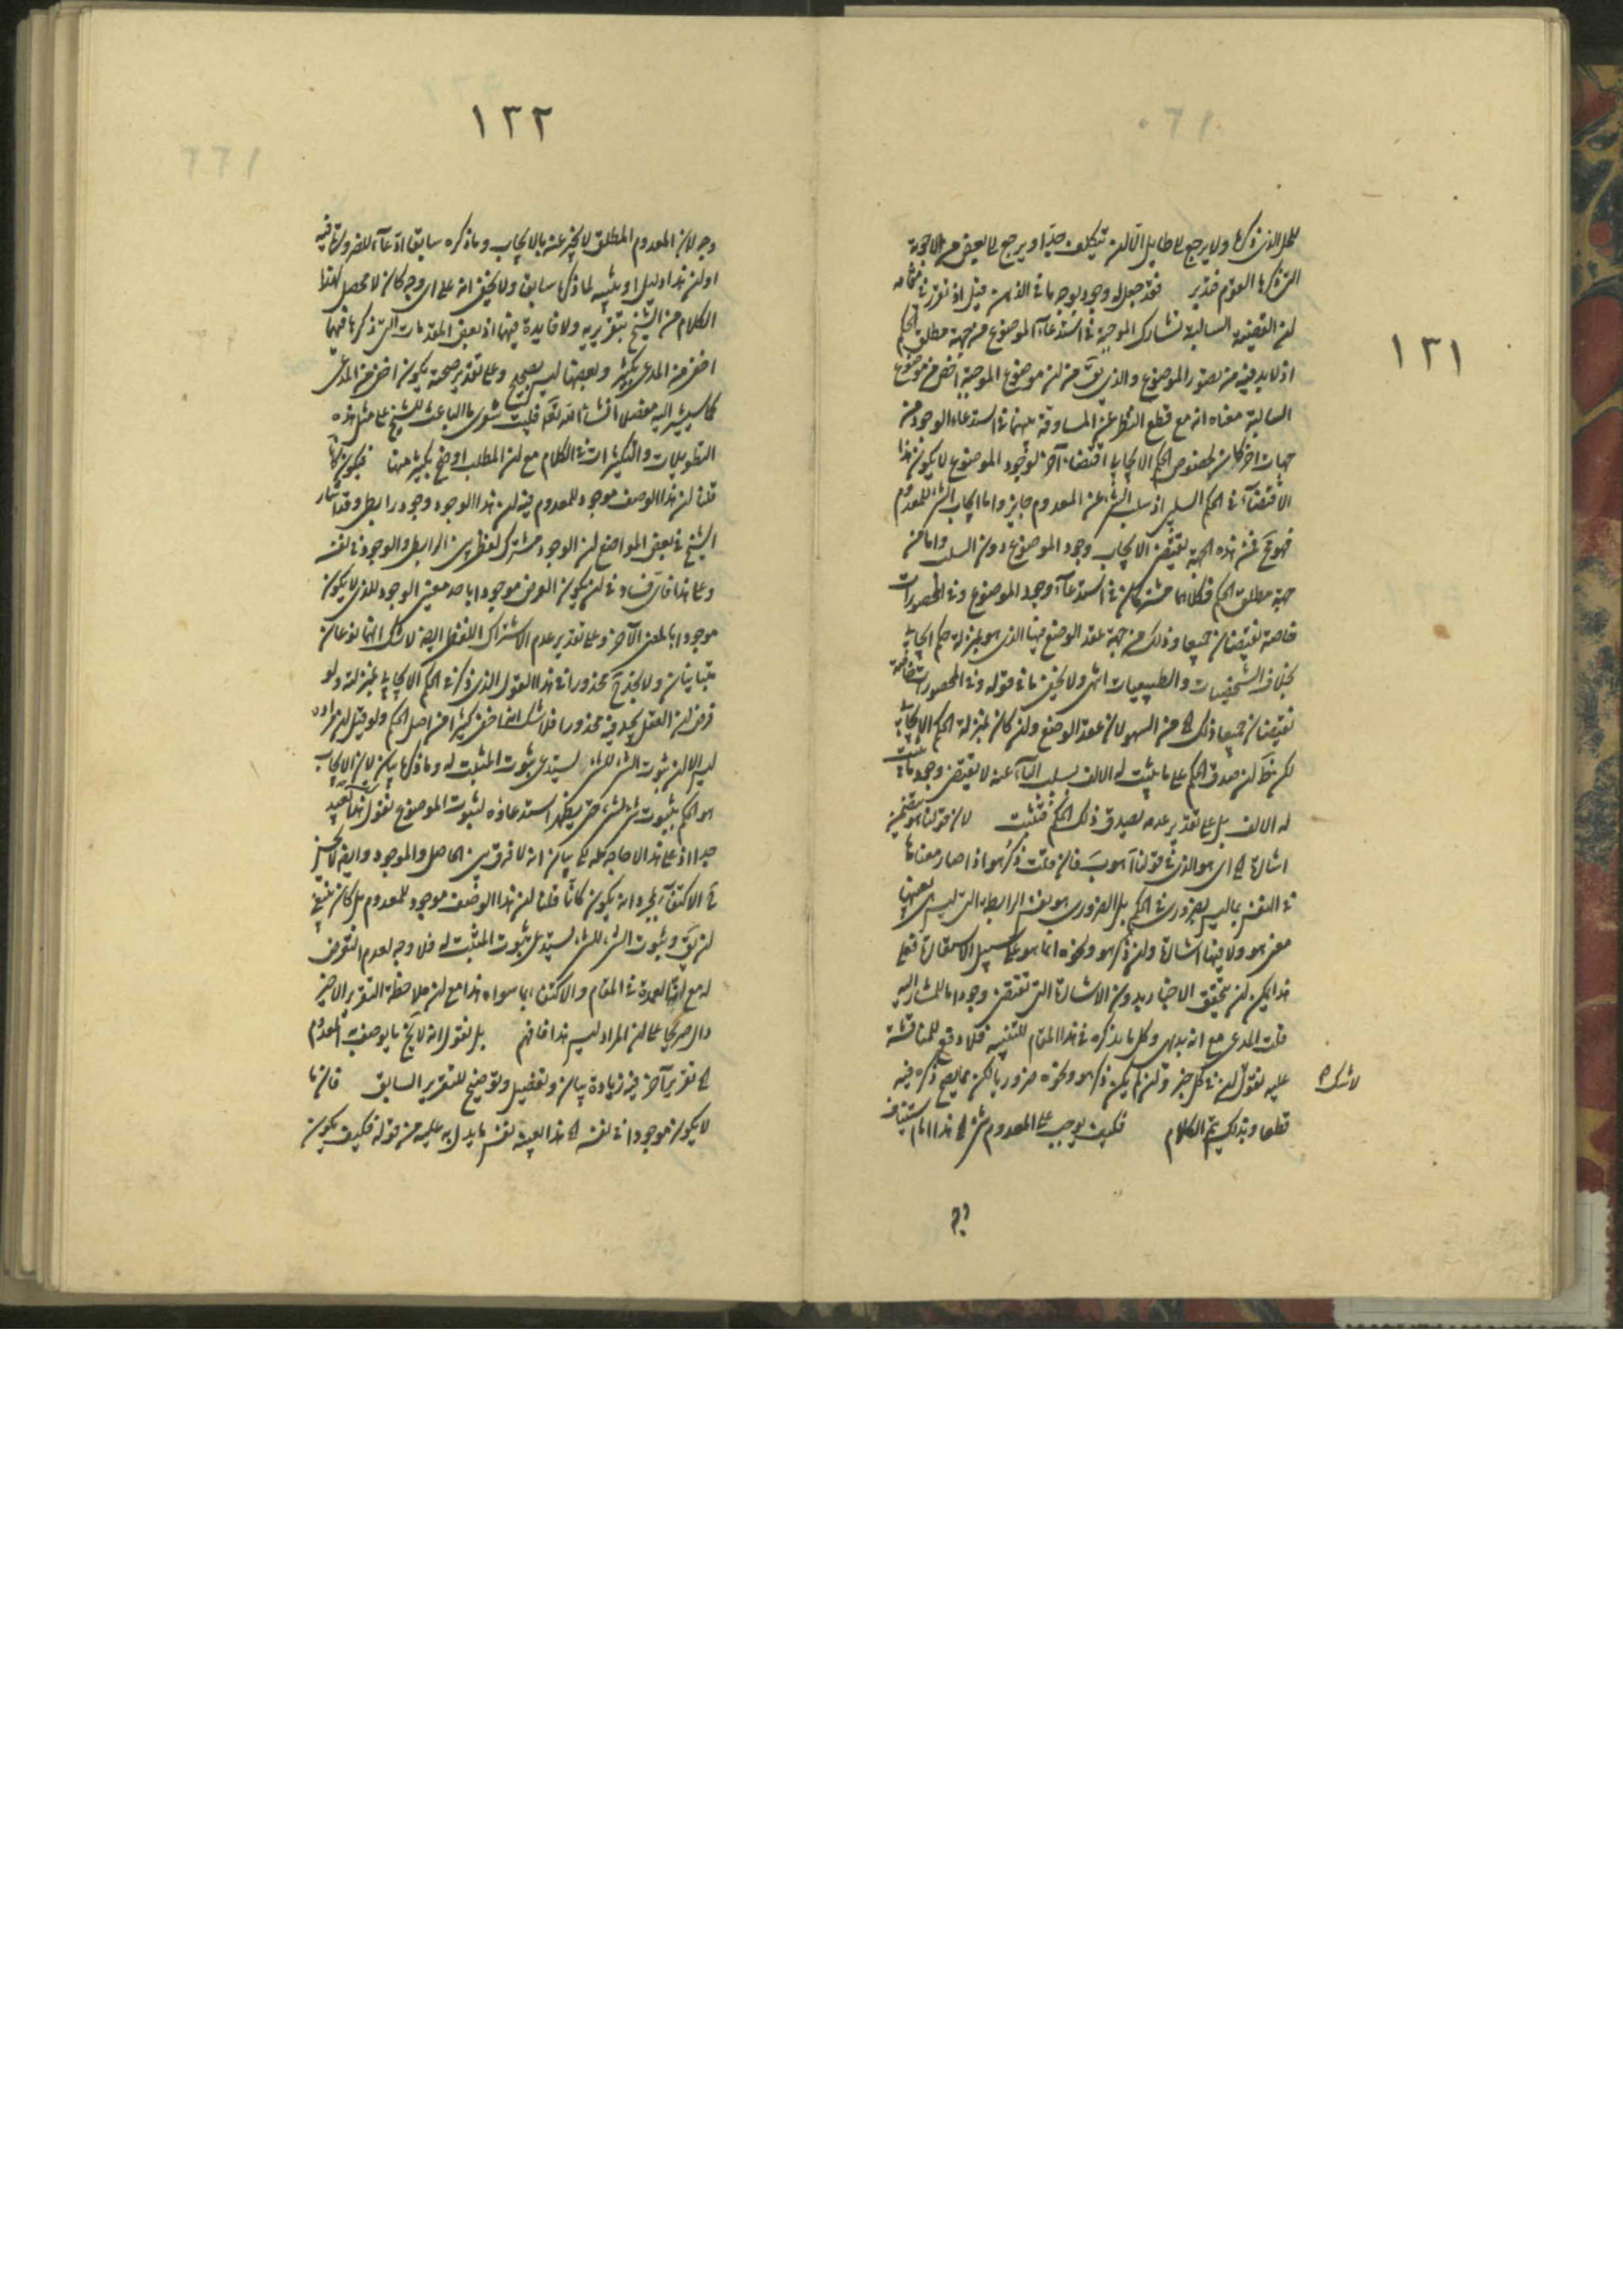 ١٢١
للحل الذى ذكرها ولا يرجع الى طايل الا ان يتكلف جدا ويرجع الى بعض من الاجوبة
التى ذكرها القوم فتدبر فقد جعل له وجود بوجه ما فى الذهن قيل اذ تقرر فى مقامه
ان القضية السالبة تشارك الموجبة فى استدعاء الموضوع من جهة مطلق الحكم
اذ لا بد فيه من تصور الموضوع والذى يق من ان موضوع الموجبة اخص من موضوع
السالبة معناه انه مع قطع النظر عن المساوقة بينهما فى استدعاء الوجود من
جهات اخر كان لخصوص الحكم الايجابى اقتضاء آخر لوجود الموضوع لا يكون هذا
الاقتضاء فى الحكم السلبى اذ سلب الشئ عن المعدوم جايز واما ايجاب الشئ للمعدوم
فهو مح فمن هذه الجهة يقتضى الايجاب وجود الموضوع دون السلب واما من
جهة مطلق الحكم فكلاهما مشتركان فى استدعاء وجود الموضوع وفى المحصورات
خاصة تقتضيان جميعا وذلك من جهة عقد الوضع فيها الذى هو بمنزلة حكم ايجابى
بخلاف الشخصيات والطبيعيات انتهى ولا يخفى ما فى قوله وفى المحصورات خاصة
تقتضيان جميعا ذلك الخ من السهو لان عقد الوضع وان كان بمنزلة الحكم الايجابى
لكن نظ ان صدق الحكم على ما يثبت له الالف بسلب الباء عنه لا يقتضى وجود ما يثبت
له الالف بل على تقدير عدمه يصدق ذلك الحكم فتثبت لان قولنا هو يتضمن
اشارة الخ اى هو الذى فى قولنا آ هو ب فان قلت ذكر هو اذا صار معناها
فى النفس مما ليس بضرورى فى الحكم بل الضرورى هو نفس الرابطة التى ليس بعينها
معنى هو ولا فيها اشارة وان ذكر هو ونحوه انما هو على سبيل الاستعارة فعلى
هذا يمكن ان يتحقق الاخبار بدون الاشارة التى تقتضى وجودا ما للمشار اليه
قلت المدعى مع انه بديهى وكل ما يذكره فى هذا المقام للتنبيه فلا وقع للمناقشة
عليه نقول ان فى كل خبر وان لم يكن ذكر هو ونحوه ضروريا لكن مما يصح ذكره فيه
لا شك
قطعا وبذلك يتم الكلام فكيف يوجب على المعدوم شئ الخ هذا اما استيناف
١٢٢
وجه لان المعدوم المطلق لا يخبر عنه بالايجاب وما ذكره سابقا ادعاء الضرورة فيه
او ان هذا دليل او تنبيه لما ذكرها سابقا ولا يخفى انه على اى وجه كان لا محصل لهذا
الكلام من الشيخ بتقريريه ولا فايدة فيهما اذ بعض المقدمات التى ذكرها فيهما
اخفى من المدعى بكثير وبعضها ليس بصحيح وعلى تقدير صحته يكون اخفى من المدعى
كما سيشير اليه مفصلا انشاء الله تعالى فليت شعرى ما الباعث للشيخ على مثل هذه
التطويلات والتكثيرات فى الكلام مع ان المطلب اوضح بكثير منها فيكون كانا
قلنا ان هذا الوصف موجود للمعدوم فيه ان هذا الوجود وجود رابطى وقد اشار
الشيخ فى بعض المواضع ان الوجود مشترك لفظى بين الرابطى والوجود فى نفسه
وعلى هذا فاى فساد فى ان يكون العرض موجودا باحد معنيى الوجود للذى لا يكون
موجودا بالمعنى الآخر وعلى تقدير عدم الاشتراك اللفظى ايضا لا شك انهما نوعان
متباينان ولا يجد مح محذورا فى هذا القول الذى ذكر فى الحكم الايجابى بمنزلته ولو
فرض ان العقل يجد فيه محذورا فلا شك انه اخفى كثيرا من اصل الحكم ولو قيل ان مراده
ليس الا ان ثبوت الشئ للشئ يستدعى ثبوت المثبت له وما ذكرها بيان لان الايجاب
هو الحكم بثبوت شئ لشئ حتى يظهر استدعاؤه لثبوت الموضوع نقول انه بعيد
جدا اذ على هذا لا حاجة كله الى بيان انه لا فرق بين الحاصل والموجود وايضا لا يحسن
مح الاكتفاء بمجرد انه يكون كانا قلنا ان هذا الوصف موجود للمعدوم بل كان ينبغى
ان يق وثبوت الشئ للشئ يستدعى ثبوت المثبت له فلا وجه لعدم التعرض
له مع انه العمدة فى المقام والاكتفاء بما سواه هذا مع ان ملاحظة التقرير الاخير
دال صريحا على ان المراد ليس هذا فافهم بل نقول انه لا يخ ما يوصف به المعدوم
الخ تقرير آخر فيه زيادة بيان وتفصيل وتوضيح للتقرير السابق فان ما
لا يكون موجودا فى نفسه الخ هذا بعينه نفس ما يدل به عليه من قوله فكيف يكون